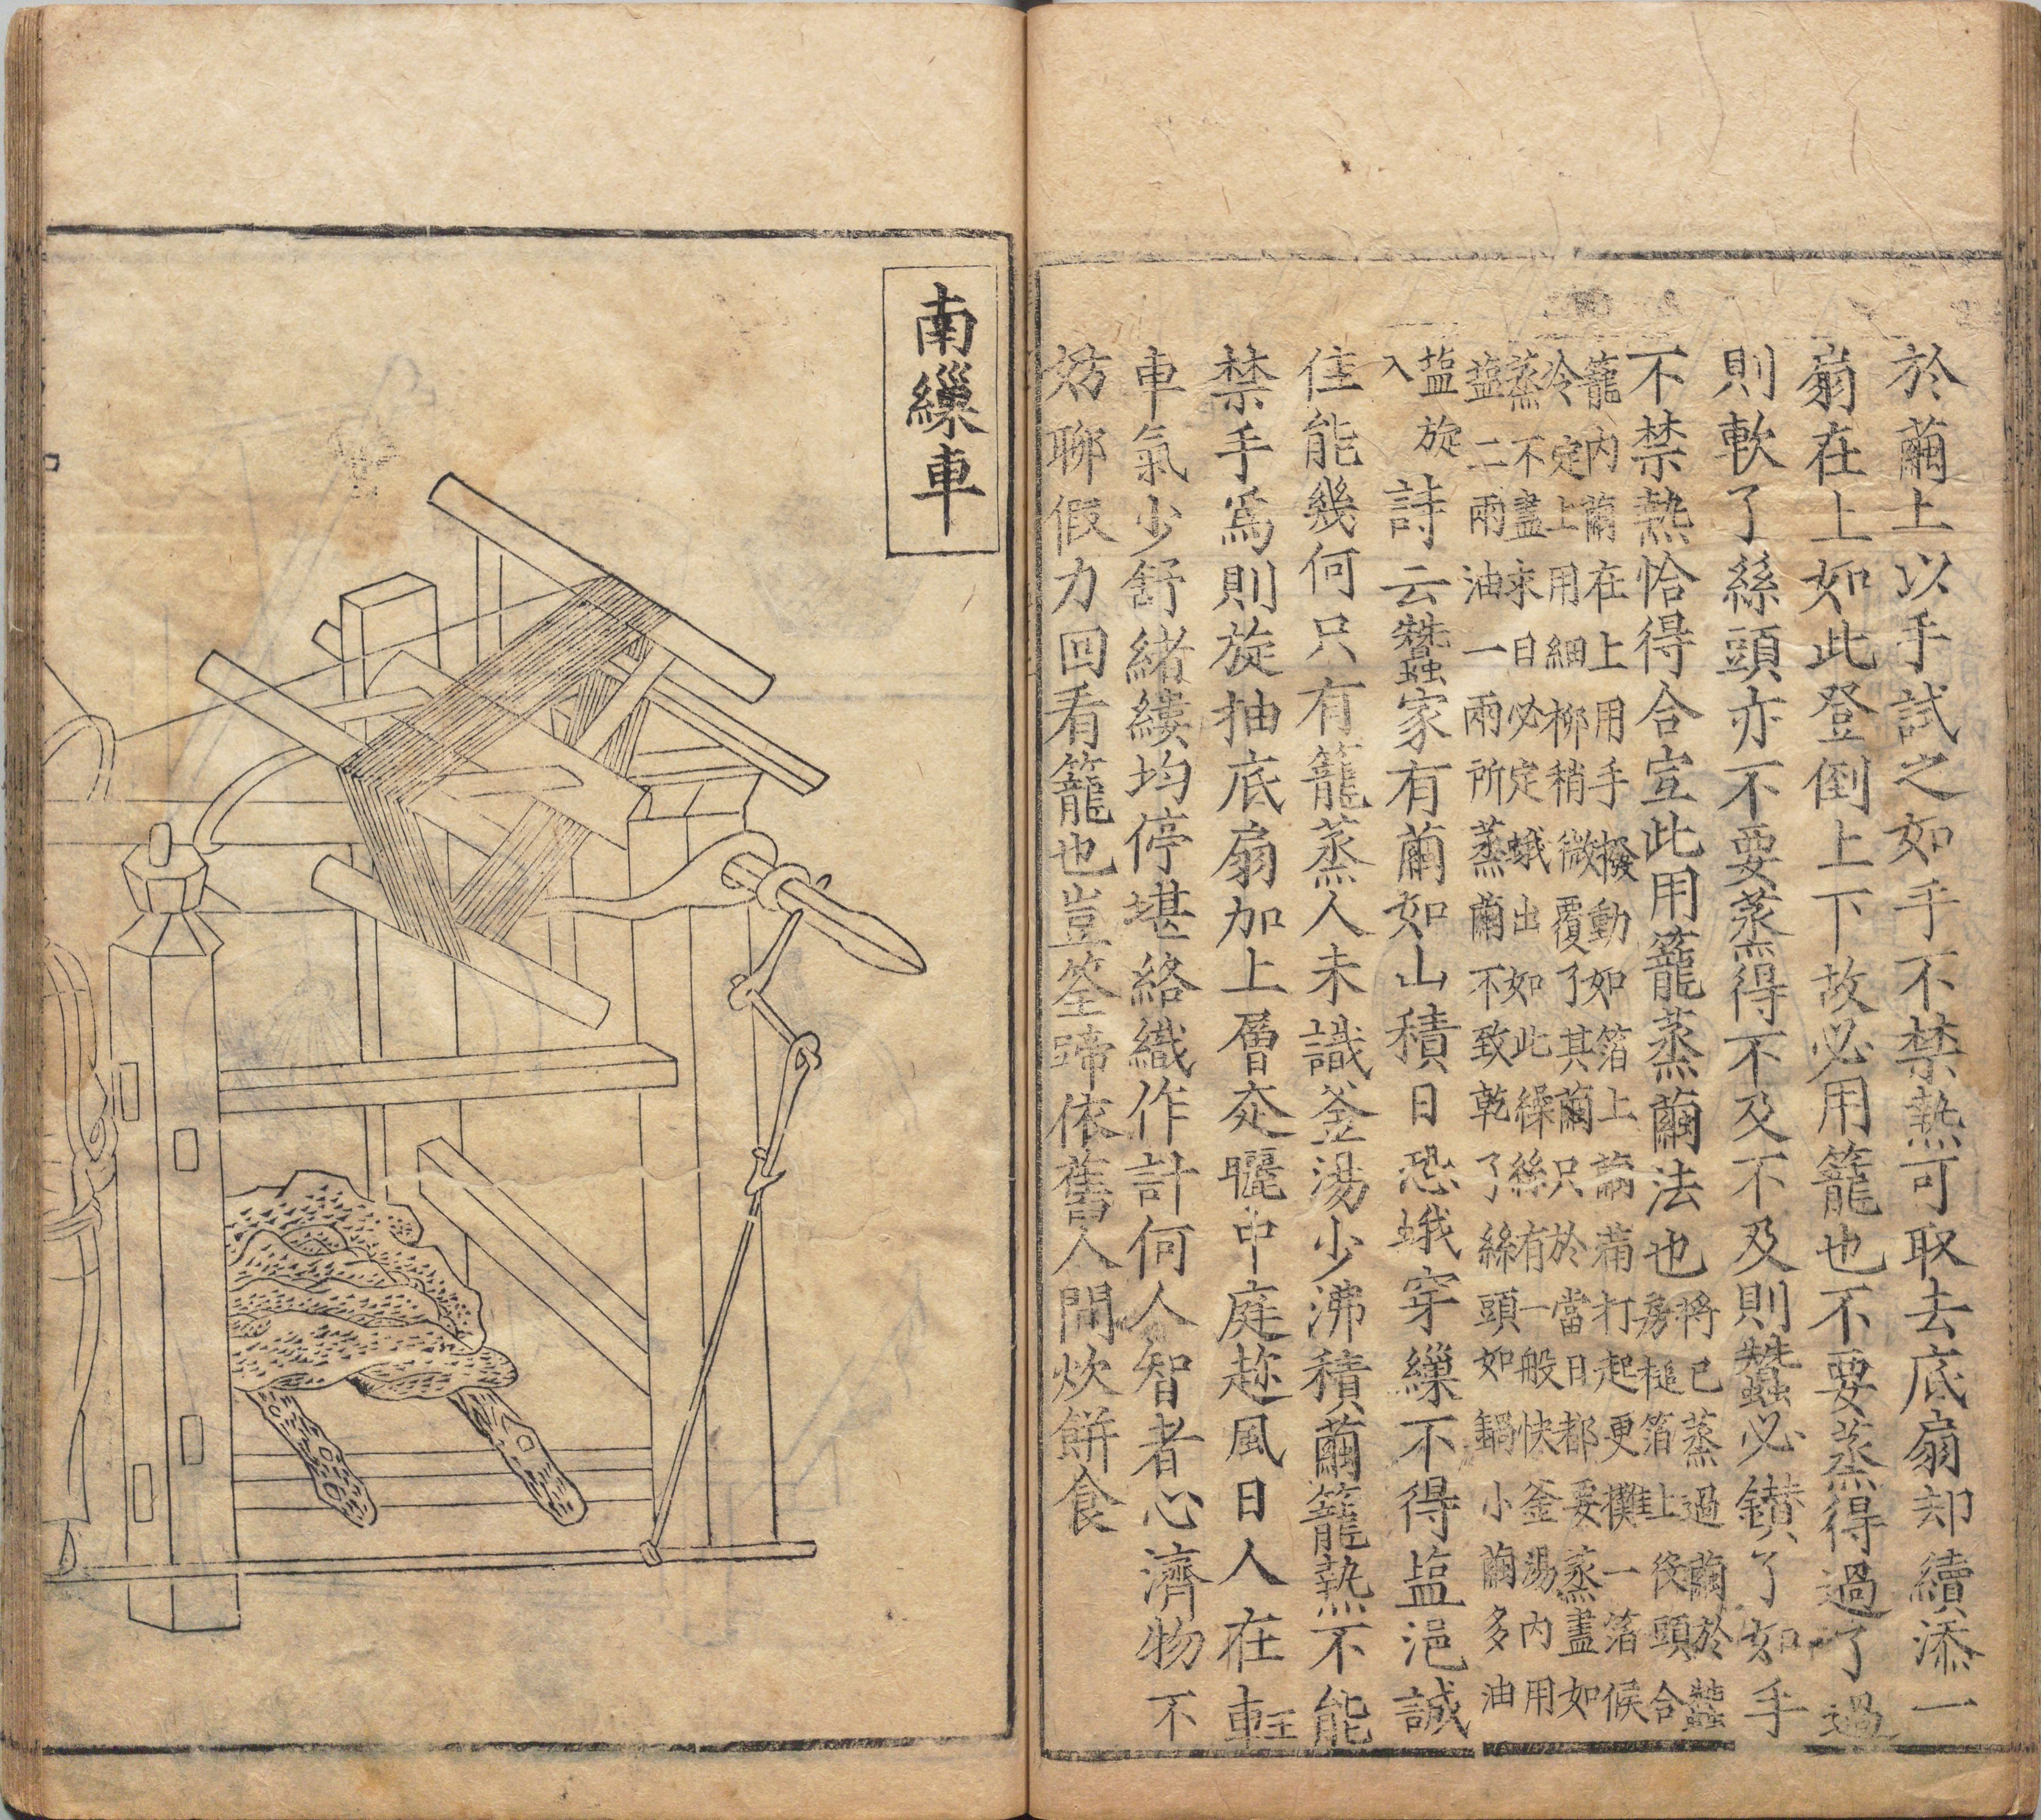 於繭上以手試之如手不禁熱可取去底扇却續添一
扇在上如此登倒上下故必用籠也不要蒸得過了過
則軟了絲頭亦不要蒸得不及不及則蠶必鑽了如手
不禁熱恰得合宜此用籠蒸繭法也
將已蒸過繭於蠶
房槌箔上從頭合
籠內繭在上用手撥動如箔上繭滿打起更攤一箔候
冷定上用細柳稍微覆了其繭只於當日都要蒸盡如
蒸不盡來日必定蛾出如此繰絲有一般快釜湯內用
塩二兩油一兩所蒸繭不致乾了絲頭如鍋小繭多油
塩旋
入
詩云蠶家有繭如山積日恐蛾穿繅不得塩浥誠
佳能幾何只有籠蒸人未識釜湯少沸積繭籠熱不能
禁手爲則旋抽底扇加上層曬中庭趂風日人在軖
車氣少舒緒縷均停堪絡織作計何人智者心濟物不
妨聊假力回看籠也豈筌蹄依舊人間炊餅食
南繅車